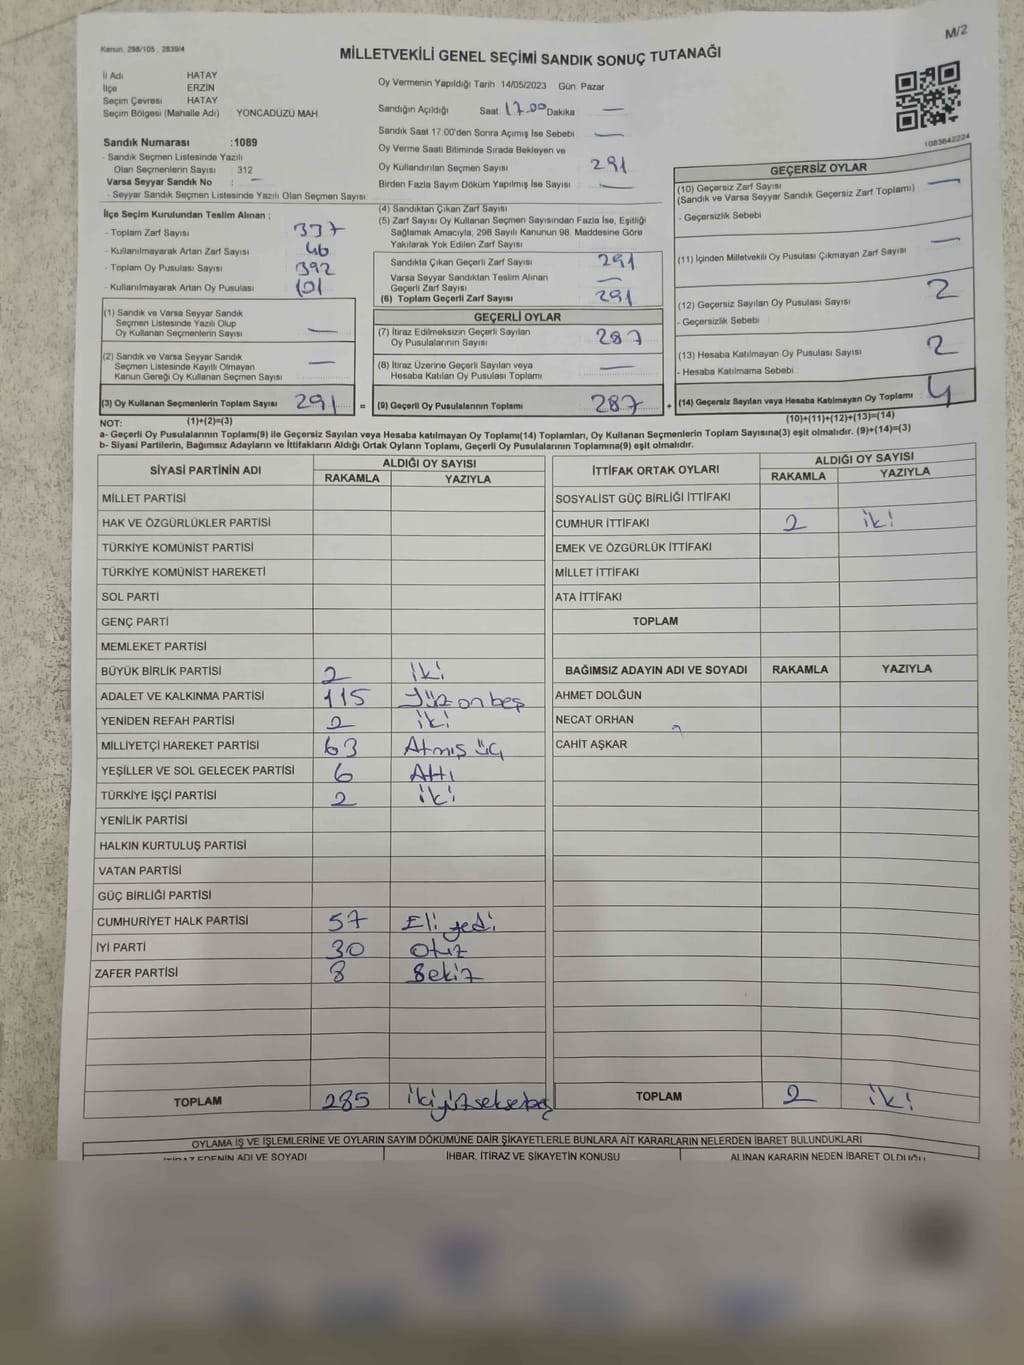 Kanun: 298/105 , 2839/4
M/2
MİLLETVEKİLİ GENEL SEÇİMİ SANDIK SONUÇ TUTANAĞI
İl Adı HATAY
İlçe ERZİN
Seçim Çevresi HATAY
Seçim Bölgesi (Mahalle Adı) YONCADÜZÜ MAH.
Sandık Numarası :1089
- Sandık Seçmen Listesinde Yazılı
Olan Seçmenlerin Sayısı 312
Varsa Seyyar Sandık No : —
- Seyyar Sandık Seçmen Listesinde Yazılı Olan Seçmen Sayısı
İlçe Seçim Kurulundan Teslim Alınan ;
- Toplam Zarf Sayısı 337
- Kullanılmayarak Artan Zarf Sayısı 46
- Toplam Oy Pusulası Sayısı 392
- Kullanılmayarak Artan Oy Pusulası 101
(1) Sandık ve Varsa Seyyar Sandık
Seçmen Listesinde Yazılı Olup
Oy Kullanan Seçmenlerin Sayısı —
(2) Sandık ve Varsa Seyyar Sandık
Seçmen Listesinde Kayıtlı Olmayan
Kanun Gereği Oy Kullanan Seçmen Sayısı —
(3) Oy Kullanan Seçmenlerin Toplam Sayısı 291 =
Oy Vermenin Yapıldığı Tarih :14/05/2023 Gün: Pazar
Sandığın Açıldığı Saat 17.00 Dakika —
Sandık Saat 17:00'den Sonra Açımış İse Sebebi —
Oy Verme Saati Bitiminde Sırada Bekleyen ve
Oy Kullandırılan Seçmen Sayısı 291
Birden Fazla Sayım Döküm Yapılmış İse Sayısı —
(4) Sandıktan Çıkan Zarf Sayısı
(5) Zarf Sayısı Oy Kullanan Seçmen Sayısından Fazla İse, Eşitliği
Sağlamak Amacıyla; 298 Sayılı Kanunun 98. Maddesine Göre
Yakılarak Yok Edilen Zarf Sayısı
Sandıkta Çıkan Geçerli Zarf Sayısı 291
Varsa Seyyar Sandıktan Teslim Alınan
Geçerli Zarf Sayısı —
(6) Toplam Geçerli Zarf Sayısı 291
GEÇERLİ OYLAR
(7) İtiraz Edilmeksizin Geçerli Sayılan
Oy Pusulalarının Sayısı 287
(8) İtiraz Üzerine Geçerli Sayılan veya
Hesaba Katılan Oy Pusulası Toplamı —
(9) Geçerli Oy Pusulalarının Toplamı 287 +
1083642224
GEÇERSİZ OYLAR
(10) Geçersiz Zarf Sayısı —
(Sandık ve Varsa Seyyar Sandık Geçersiz Zarf Toplamı)
- Geçersizlik Sebebi
(11) İçinden Milletvekili Oy Pusulası Çıkmayan Zarf Sayısı —
(12) Geçersiz Sayılan Oy Pusulası Sayısı 2
- Geçersizlik Sebebi
(13) Hesaba Katılmayan Oy Pusulası Sayısı 2
- Hesaba Katılmama Sebebi
(14) Geçersiz Sayılan veya Hesaba Katılmayan Oy Toplamı 4
NOT: (1)+(2)=(3) (10)+(11)+(12)+(13)=(14)
a- Geçerli Oy Pusulalarının Toplamı(9) ile Geçersiz Sayılan veya Hesaba katılmayan Oy Toplamı(14) Toplamları, Oy Kullanan Seçmenlerin Toplam Sayısına(3) eşit olmalıdır. (9)+(14)=(3)
b- Siyasi Partilerin, Bağımsız Adayların ve İttifakların Aldığı Ortak Oyların Toplamı, Geçerli Oy Pusulalarının Toplamına(9) eşit olmalıdır.
SİYASİ PARTİNİN ADI ALDIĞI OY SAYISI
RAKAMLA YAZIYLA
MİLLET PARTİSİ
HAK VE ÖZGÜRLÜKLER PARTİSİ
TÜRKİYE KOMÜNİST PARTİSİ
TÜRKİYE KOMÜNİST HAREKETİ
SOL PARTİ
GENÇ PARTİ
MEMLEKET PARTİSİ
BÜYÜK BİRLİK PARTİSİ 2 İki
ADALET VE KALKINMA PARTİSİ 115 Yüz on beş
YENİDEN REFAH PARTİSİ 2 iki
MİLLİYETÇİ HAREKET PARTİSİ 63 Atmış üç
YEŞİLLER VE SOL GELECEK PARTİSİ 6 Altı
TÜRKİYE İŞÇİ PARTİSİ 2 iki
YENİLİK PARTİSİ
HALKIN KURTULUŞ PARTİSİ
VATAN PARTİSİ
GÜÇ BİRLİĞİ PARTİSİ
CUMHURİYET HALK PARTİSİ 57 Eli yedi
İYİ PARTİ 30 Otuz
ZAFER PARTİSİ 8 Sekiz
TOPLAM 285 ikiyüzseksebeş
İTTİFAK ORTAK OYLARI ALDIĞI OY SAYISI
RAKAMLA YAZIYLA
SOSYALİST GÜÇ BİRLİĞİ İTTİFAKI
CUMHUR İTTİFAKI 2 iki
EMEK VE ÖZGÜRLÜK İTTİFAKI
MİLLET İTTİFAKI
ATA İTTİFAKI
TOPLAM
BAĞIMSIZ ADAYIN ADI VE SOYADI RAKAMLA YAZIYLA
AHMET DOLĞUN
NECAT ORHAN
CAHİT AŞKAR
TOPLAM 2 iki
OYLAMA İŞ VE İŞLEMLERİNE VE OYLARIN SAYIM DÖKÜMÜNE DAİR ŞİKAYETLERLE BUNLARA AİT KARARLARIN NELERDEN İBARET BULUNDUKLARI
İTİRAZ EDENİN ADI VE SOYADI İHBAR, İTİRAZ VE ŞİKAYETİN KONUSU ALINAN KARARIN NEDEN İBARET OLDUĞU